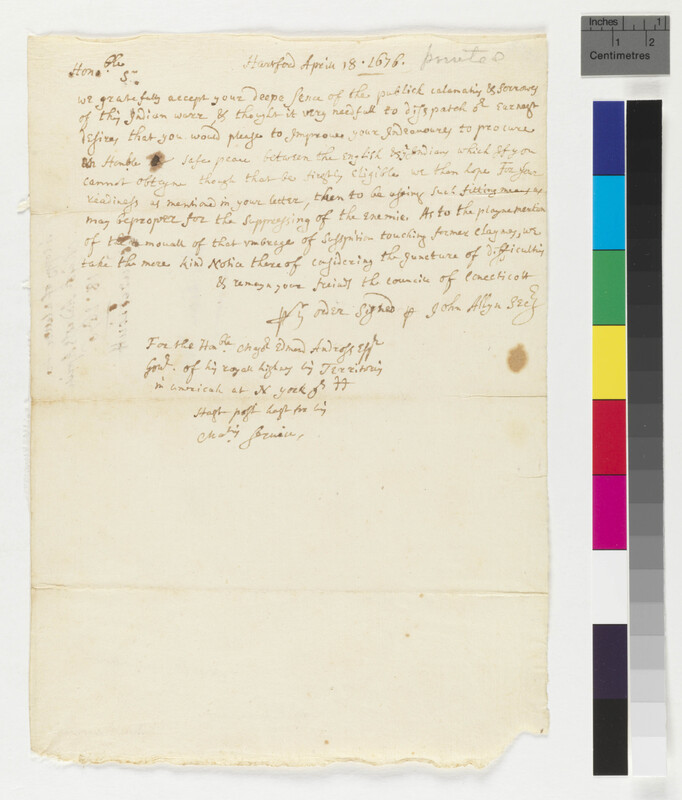 Hartford April 18. 1676. printed
Hon.ble
Sr.
we gratefully accept your deepe sence of the publick calamatis & sorrows
of this Indian warr & thought it very needfull to disspatch or Earnest
desires that you would please to Improve your Indeavoures to procure
an Honble or safe peace between the English & Indians which if you
cannot obteyne though that be firstly Eligible we then hope for
readiness as mentioned in your letter, then to be assisting such fitting meanes as
may be proper for the suppressing of the Enemie. As to the
of the remouall of that vmbrage of susspition touching former claymes, we
take the more kind Notice thereof considering the Juncture of difficulties
& remayn your friends the councill of Conecticott
pr order signed pr John Allyn Secry
For the Honble. Majr. Edmond Andross Esqr
Gour. of his royall highnes his Territoris
in americah at N york pr dd
Hast post hast for his
Matis Service,
Inches 1
1 2
Centimetres